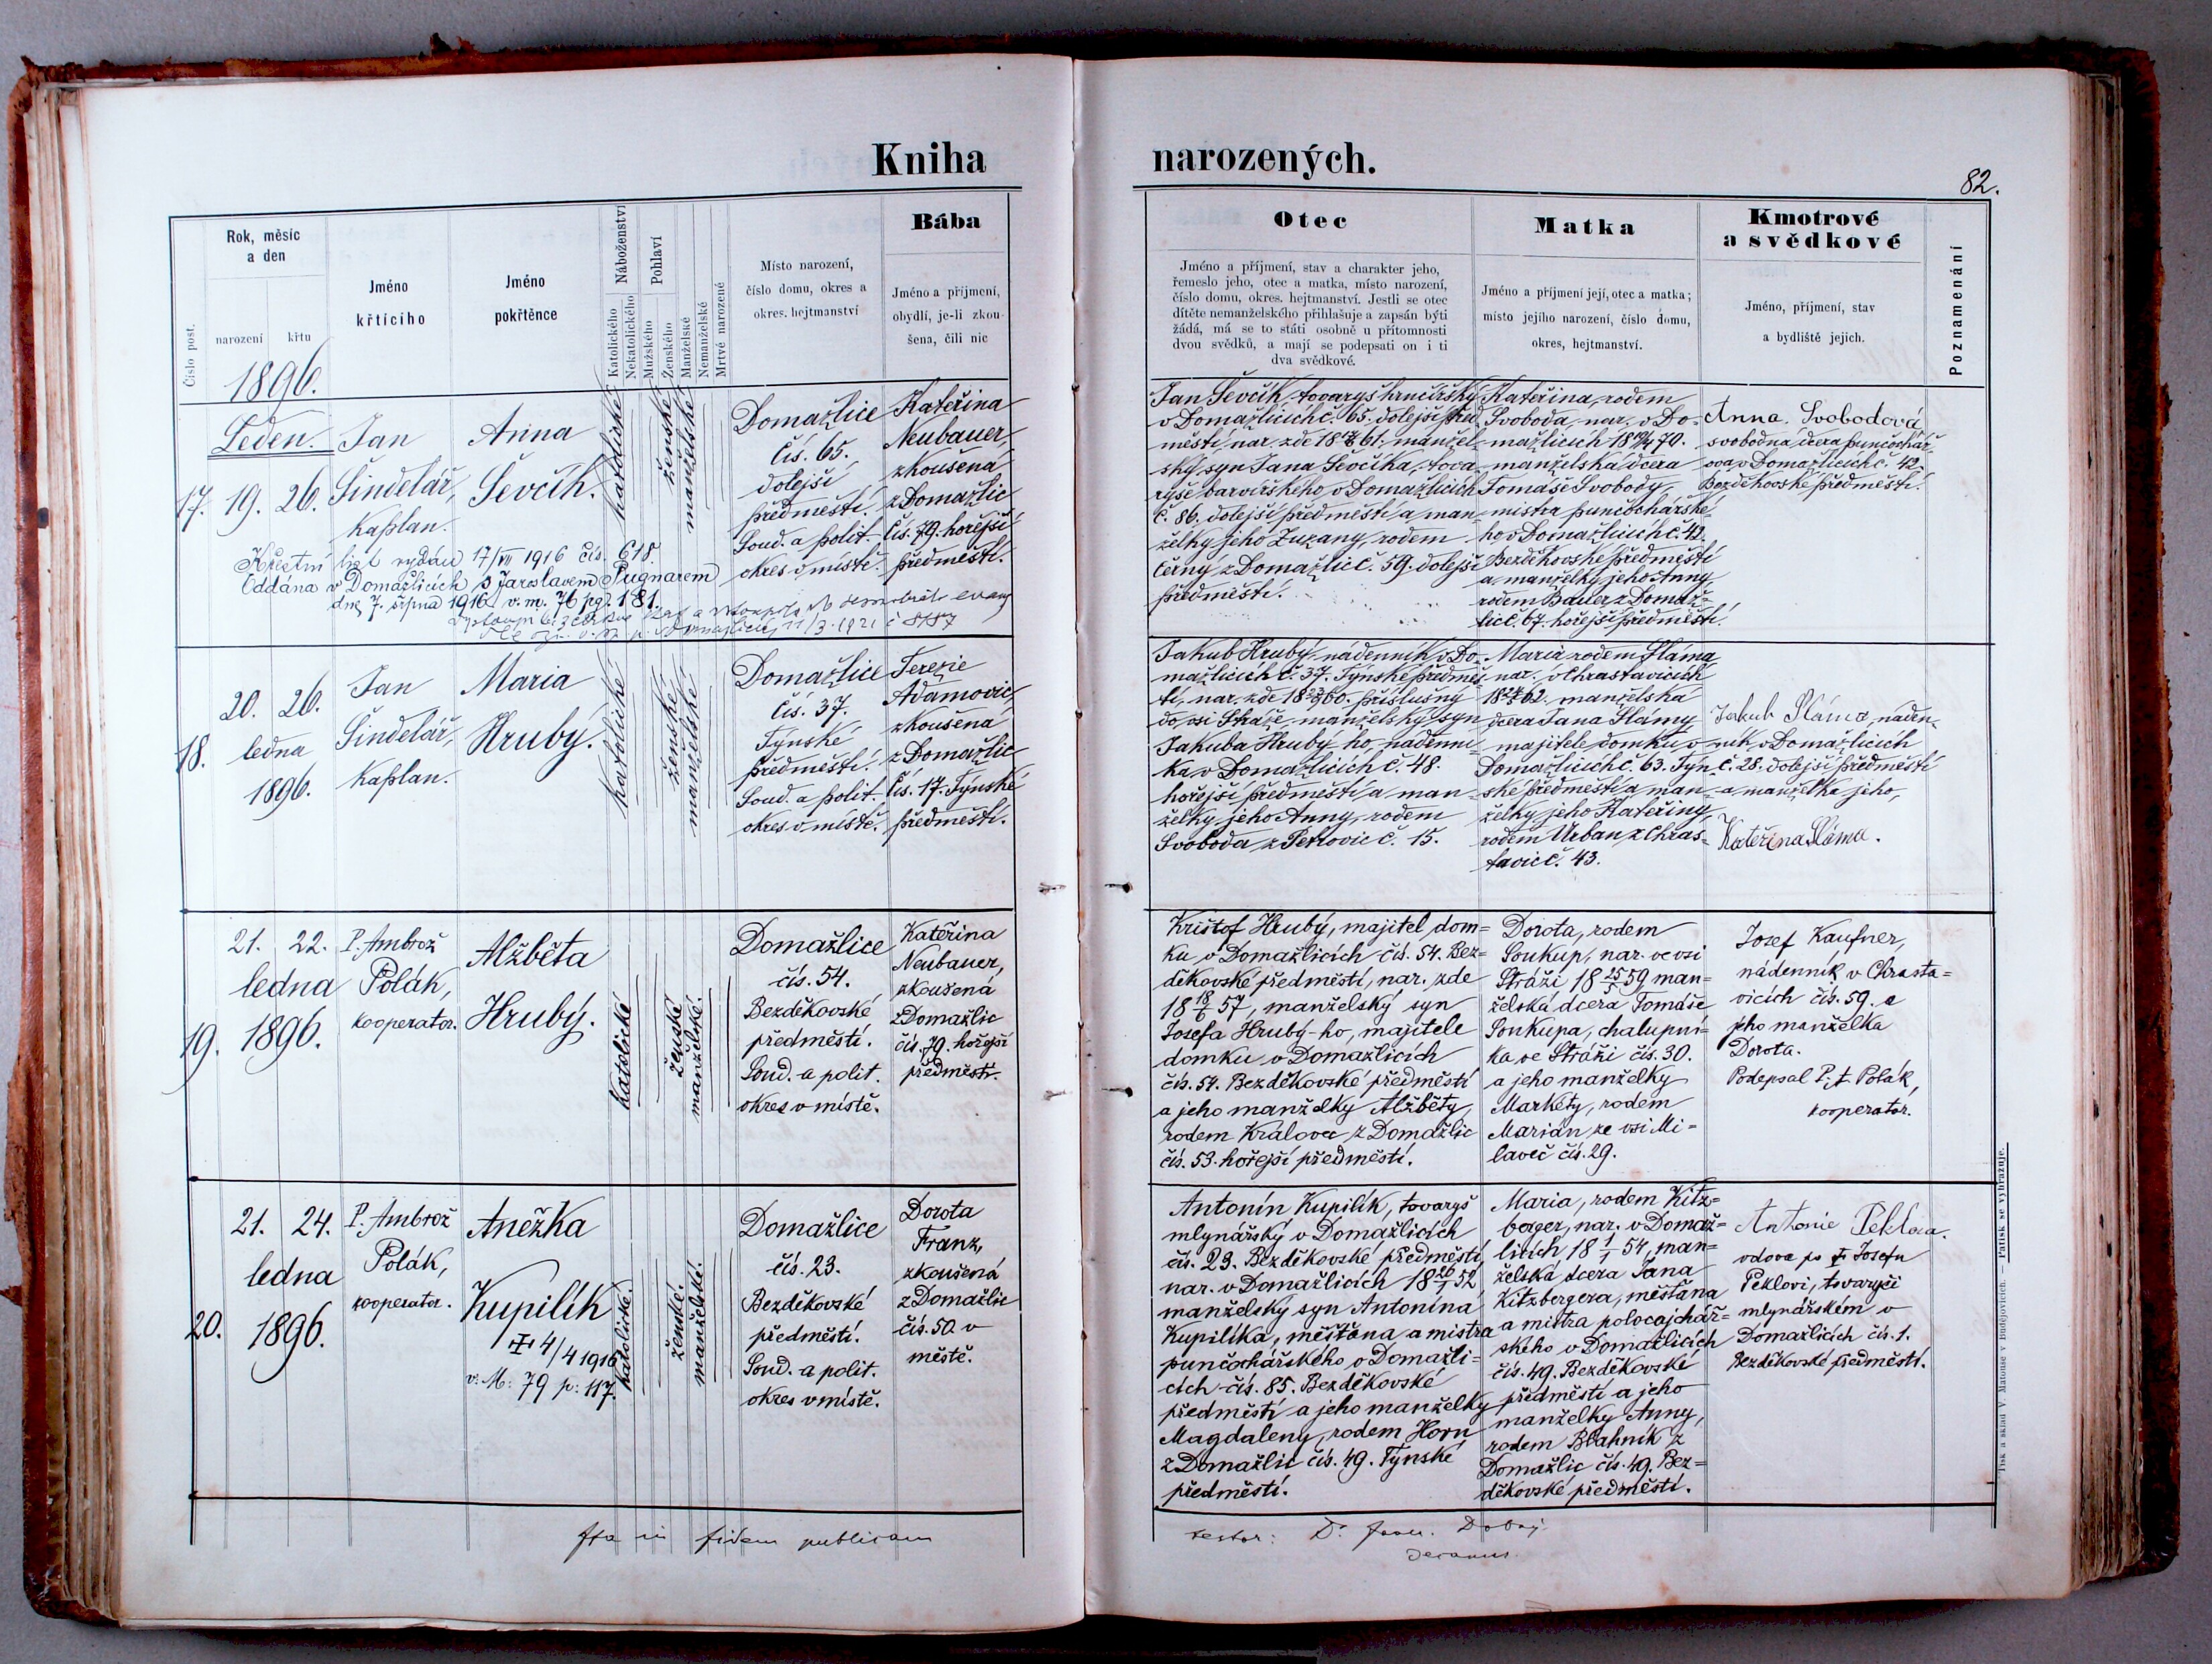 Kniha
narozených.
82.
Číslo post.
Rok, měsíc
a den
narození
křtu
Jméno
křtícího
Jméno
pokřtěnce
Náboženství
Katolického
Nekatolického
Pohlaví
Mužského
Ženského
Manželské
Nemanželské
Mrtvě narozené
Místo narození,
číslo domu, okres a
okres. hejtmanství
Bába
Jméno a příjmení,
obydlí, je-li zkou-
šena, čili nic
Otec
Jméno a příjmení, stav a charakter jeho,
řemeslo jeho, otec a matka, místo narození,
číslo domu, okres. hejtmanství. Jestli se otec
dítěte nemanželského přihlašuje a zapsán býti
žádá, má se to státi osobně u přítomnosti
dvou svědků, a mají se podepsati on i ti
dva svědkové.
Matka
Jméno a příjmení její, otec a matka;
místo jejího narození, číslo domu,
okres, hejtmanství.
Kmotrové
a svědkové
Jméno, příjmení, stav
a bydliště jejich.
Poznamenání
1896.
Leden.
17.
19.
26.
Jan
Šindelář,
kaplan.
Anna
Ševčík.
katolické
ženské
manželské
Domažlice
čís. 65.
dolejší
předměstí.
Soud. a polit.
okres v místě.
Kateřina
Neubauer,
zkoušená
z Domažlic
čís. 79. hořejší
předměstí.
Křestní list vydán 17/VII 1916 čís. 618.
Oddána v Domažlicích s Jaroslavem Pugnarem
dne 7. srpna 1916 v. m. 76 pg. 181.
11/3. 1921
Jan Ševčík, tovaryš hrnčířský
v Domažlicích č. 65. dolejší před-
městí, nar. zde 18 61. manžel-
ský syn Jana Ševčíka, tova-
ryše barvířského v Domažlicích
č. 86. dolejší předměstí a man-
želky jeho Zuzany, rodem
Černý z Domažlic č. 59. dolejší
předměstí.
Kateřina, rodem
Svoboda, nar. v Do-
mažlicích 18 70.
manželská dcera
Tomáše Svobody,
mistra punčochářské-
ho v Domažlicích č. 42.
Bezděkovské předměstí
a manželky jeho Anny,
rodem Bauer z Domaž-
lic č. 67. hořejší předměstí.
Anna Svobodová,
svobodná dcera punčochář-
ova v Domažlicích č. 42.
Bezděkovské předměstí.
18.
20. 26.
ledna
1896.
Jan
Šindelář,
kaplan.
Maria
Hrubý.
katolické
ženské
manželské
Domažlice
čís. 37.
Týnské
předměstí.
Soud. a polit.
okres v místě.
Terezie
Adamovic,
zkoušena
z Domažlic
čís. 17. Týnské
předměstí.
Jakub Hrubý, nádenník v Do-
mažlicích č. 37. Týnské předměs-
tí, nar. zde 18 60. příslušný
do vsi Stráže, manželský syn
Jakuba Hrubý-ho, nádenní-
ka v Domažlicích č. 48.
hořejší předměstí a man-
želky jeho Anny, rodem
Svoboda z Petrovic č. 15.
Maria rodem Sláma
nar. v Chrastavicích
18 62. manželská
dcera Jana Slámy
majitele domku v
Domažlicích č. 63. Týn-
ské předměstí a man-
želky jeho Kateřiny
rodem Urban z Chras-
tavic č. 43.
Jakub Sláma, náden-
ník v Domažlicích
č. 28. dolejší předměstí
a manželka jeho,
Kateřina Sláma.
19.
21. 22.
ledna
1896.
P. Ambrož
Polák,
kooperator.
Alžběta
Hrubý.
katolické
ženské
manželské.
Domažlice
čís. 54.
Bezděkovské
předměstí.
Soud. a polit.
okres v místě.
Kateřina
Neubauer,
zkoušená
z Domažlic
čís. 79. hořejší
předměstí.
Krištof Hrubý, majitel dom=
ku v Domažlicích čís. 54. Bez=
děkovské předměstí, nar. zde
18 18/6 57, manželský syn
Josefa Hrubý-ho, majitele
domku v Domažlicích
čís. 54. Bezděkovské předměstí
a jeho manželky Alžběty,
rodem Královec z Domažlic
čís. 53. hořejší předměstí.
Dorota, rodem
Soukup, nar. ve vsi
Stráži 18 25/5 59 man=
želská dcera Tomáše
Soukupa, chalupní=
ka ve Stráži čís. 30.
a jeho manželky
Markéty, rodem
Marián ze vsi Mi=
laveč čís. 29.
Josef Kaufner,
nádenník v Chrasta=
vicích čís. 59. a
jeho manželka
Dorota.
Podepsal P. A. Polák,
kooperator.
20.
21. 24.
ledna
1896.
P. Ambrož
Polák,
kooperator.
Anežka
Kupilík
4/4 1916
v. M: 79 p: 117.
katolické.
ženské.
manželské.
Domažlice
čís. 23.
Bezděkovské
předměstí.
Soud. a polit.
okres v místě.
Dorota
Franz,
zkoušená
z Domažlic
čís. 50. v
městě.
Antonín Kupilík, tovaryš
mlynářský v Domažlicích
čís. 23. Bezděkovské předměstí,
nar. v Domažlicích 18 26/1 52,
manželský syn Antonína
Kupilíka, měšťana a mistra
punčochářského v Domažli=
cích čís. 85. Bezděkovské
předměstí a jeho manželky
Magdaleny, rodem Horn
z Domažlic čís. 49. Týnské
předměstí.
Maria, rodem Kitz=
berger, nar. v Domaž=
licích 18 1/1 54, man=
želská dcera Jana
Kitzbergera, měšťana
a mistra polocajchář=
ského v Domažlicích
čís. 49. Bezděkovské
předměstí a jeho
manželky Anny,
rodem Blahník z
Domažlic čís. 49. Bez=
děkovské předměstí.
Antonie Peklova.
vdova po Josefu
Peklovi, tovaryši
mlynářském v
Domažlicích čís. 1.
Bezděkovské předměstí.
Ita in fidem publicam
testor:
decanus.
Tisk a sklad V. Matouse v Budějovicích. — Patisk se vyhrazuje.